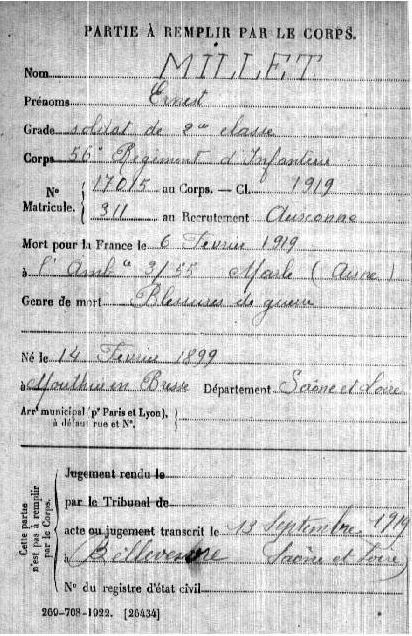 PARTIE À REMPLIR PAR LE CORPS.
Nom MILLET
Prénoms Ernest
Grade soldat de 2me classe
Corps 56e Régiment d'Infanterie
No Matricule. { 17015 au Corps. — Cl. 1919
311 au Recrutement Auxonne
Mort pour la France le 6 Février 1919
à l'Amb 3/55 Marle (Aisne)
Genre de mort Blessures de guerre
Né le 14 Février 1899
à Mouthier en Bresse Département Saône et Loire
Arrt municipal (pr Paris et Lyon),
à défaut rue et No.
Cette partie n'est pas à remplir par le Corps.
Jugement rendu le
par le Tribunal de
acte ou jugement transcrit le 13 Septembre 1919
à Bellevesvre Saône et Loire
No du registre d'état civil
269-708-1922. [26434]